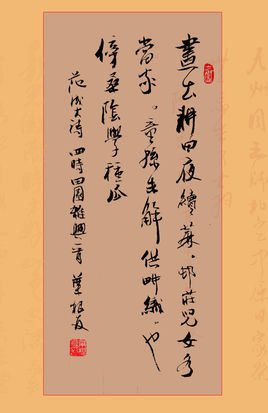 晝出耕田夜績麻、邨莊兒女各
當家。童孫未解供畊織、也
傍桑陰學種瓜
范成大詩 四時田園雜興一首 葉根友